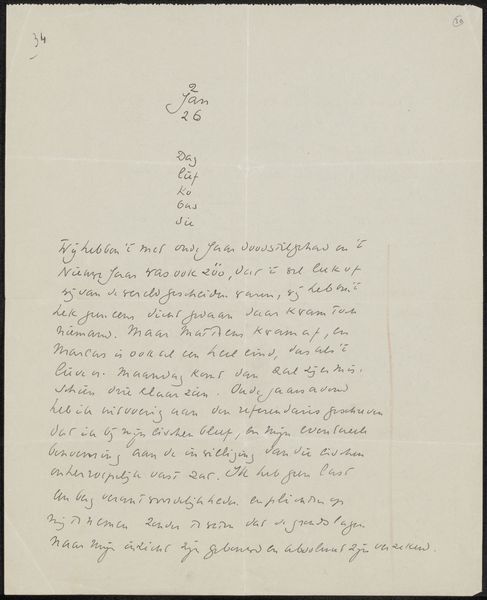 34
39
2
Jan
26
Dag
lief
ko
bus
sie
Wij hebben 't met oude Jaar doodstil gehad en 't
Nieuwe Jaar was ook zóó, dat 't wel leek of
wij van de wereld gescheiden waren, wij hebben 't
hek geen eens dicht gedaan daar kwam toch
niemand. Maar Matthens kwam af, en
Marcus is ook al een heel eind, dus als 't
Maandag komt dan zal zij mis-
schien drie klaar zien. Oude jaarsavond
heb ik uitvoerig aan den referendaris geschreven
dat ik bij mijn eischen bleef, en mijn eventueele
benoeming aan de inwilliging van die eischen
onherroepelijk vast zat. Ik heb geen lust
en verantwoordelijkheden en plichten op
mij te nemen zonder te weten dat de grondslagen
naar mijn inzicht zijn gebouwd en absoluut zijn verzekerd.